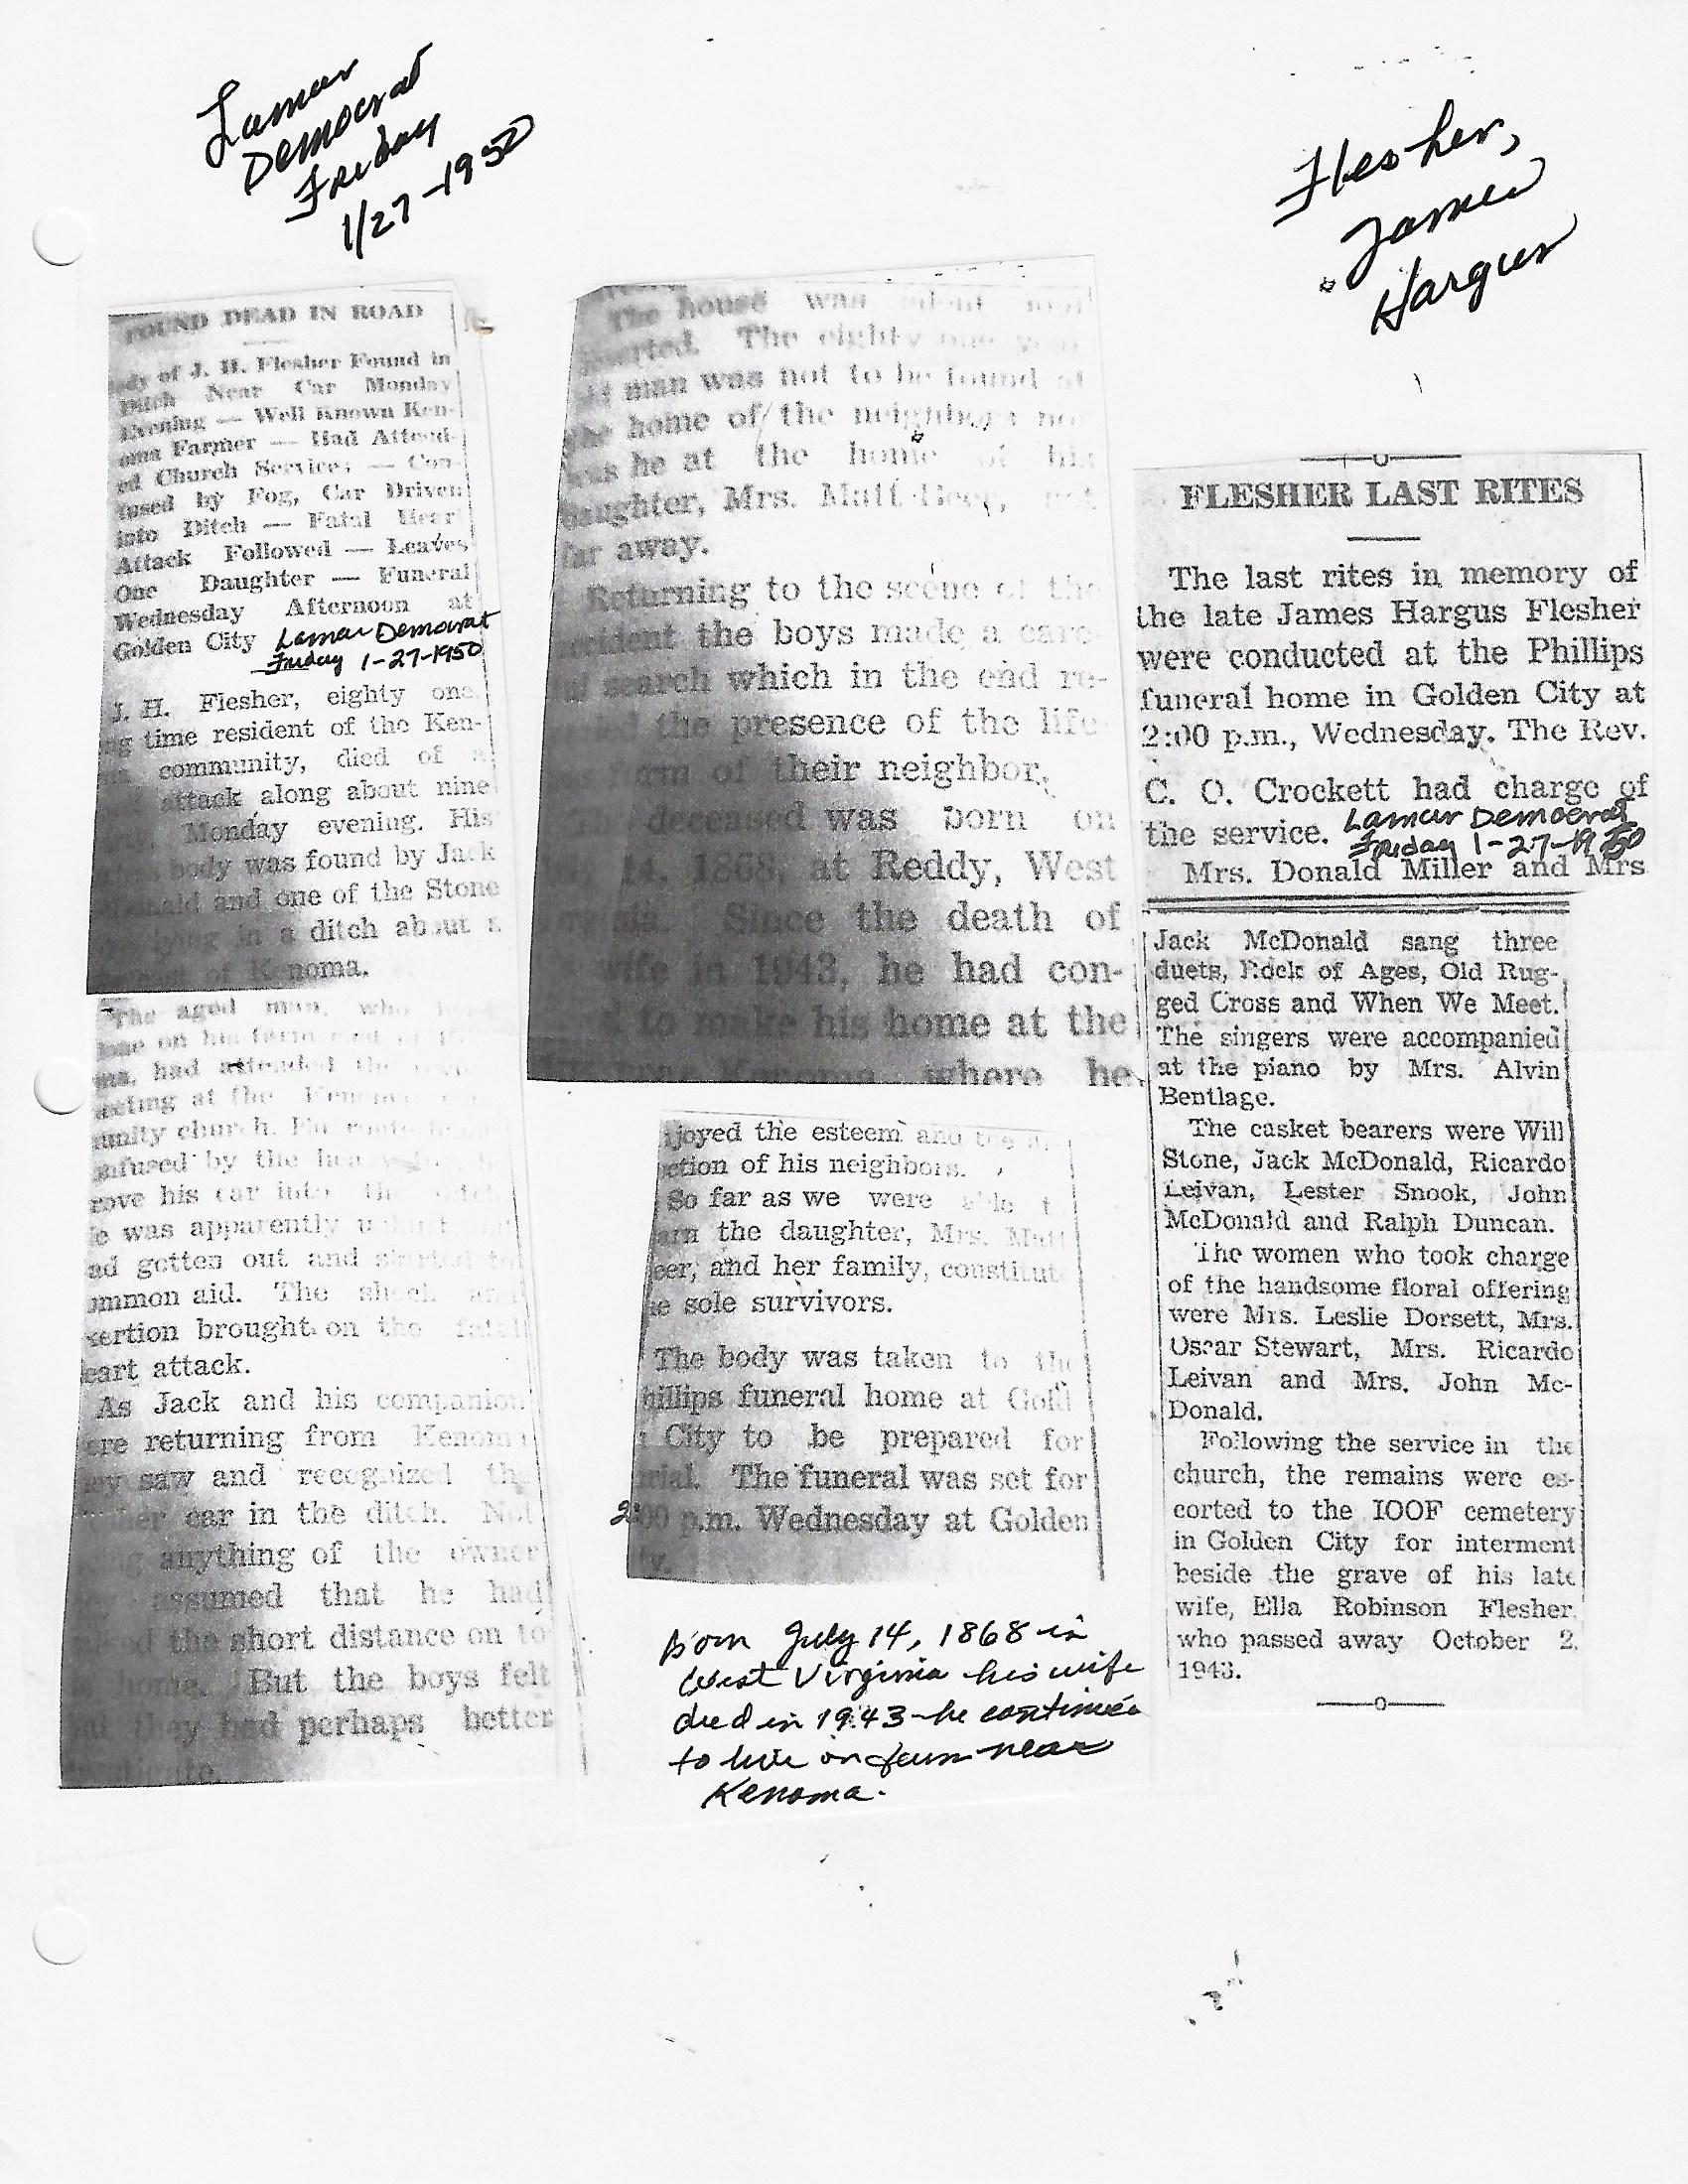 Lamar
Democrat
Friday
1/27-1950
Flesher,
James
Hargus
FOUND DEAD IN ROAD
of J. H. Flesher Found in
Ditch Near Car Monday
Evening — Well Known Ken-
oma Farmer — Had Attend-
ed Church Services — Con-
fused by Fog, Car Driven
into Ditch — Fatal Hear
Attack Followed — Leaves
One Daughter — Funeral
Wednesday Afternoon at
Golden City Lamar Democrat
Friday 1-27-1950
J. H. Flesher, eighty one
time resident of the Ken-
community, died of
attack along about nine
Monday evening. His
body was found by Jack
and one of the Stone
in a ditch about
of Kenoma.
The aged man, who
on his farm
had attended the
at the
church.
by the
his car into the
was apparently
gotten out and started to
aid. The shock
brought on the
attack.
As Jack and his companion
returning from Kenoma
saw and recognized the
car in the ditch. Not
anything of the owner
assumed that he had
the short distance on to
home. But the boys felt
they had perhaps better
The house was
The eighty one
man was not to be found at
home of the neighbors
he at the home of his
Mrs. Matt
far away.
Returning to the scene of the
the boys made a care
search which in the end re-
the presence of the life
of their neighbor.
deceased was born on
14, 1868, at Reddy, West
Since the death of
in 1943, he had con-
to make his home at the
where he
joyed the esteem and the
of his neighbors.
So far as we were able t
the daughter, Mrs. Matt
and her family, constitute
sole survivors.
The body was taken to the
funeral home at Gold
City to be prepared for
The funeral was set for
2:00 p.m. Wednesday at Golden
Born July 14, 1868 in
West Virginia his wife
died in 1943 - he continued
to live on farm near
Kenoma.
FLESHER LAST RITES
The last rites in memory of
the late James Hargus Flesher
were conducted at the Phillips
funeral home in Golden City at
2:00 p.m., Wednesday. The Rev.
C. O. Crockett had charge of
the service. Lamar Democrat
Friday 1-27-1950
Mrs. Donald Miller and Mrs
Jack McDonald sang three
duets, Rock of Ages, Old Rug-
ged Cross and When We Meet.
The singers were accompanied
at the piano by Mrs. Alvin
Bentlage.
The casket bearers were Will
Stone, Jack McDonald, Ricardo
Leivan, Lester Snook, John
McDonald and Ralph Duncan.
The women who took charge
of the handsome floral offering
were Mrs. Leslie Dorsett, Mrs.
Oscar Stewart, Mrs. Ricardo
Leivan and Mrs. John Mc-
Donald.
Following the service in the
church, the remains were es-
corted to the IOOF cemetery
in Golden City for interment
beside the grave of his late
wife, Ella Robinson Flesher
who passed away October 2,
1943.